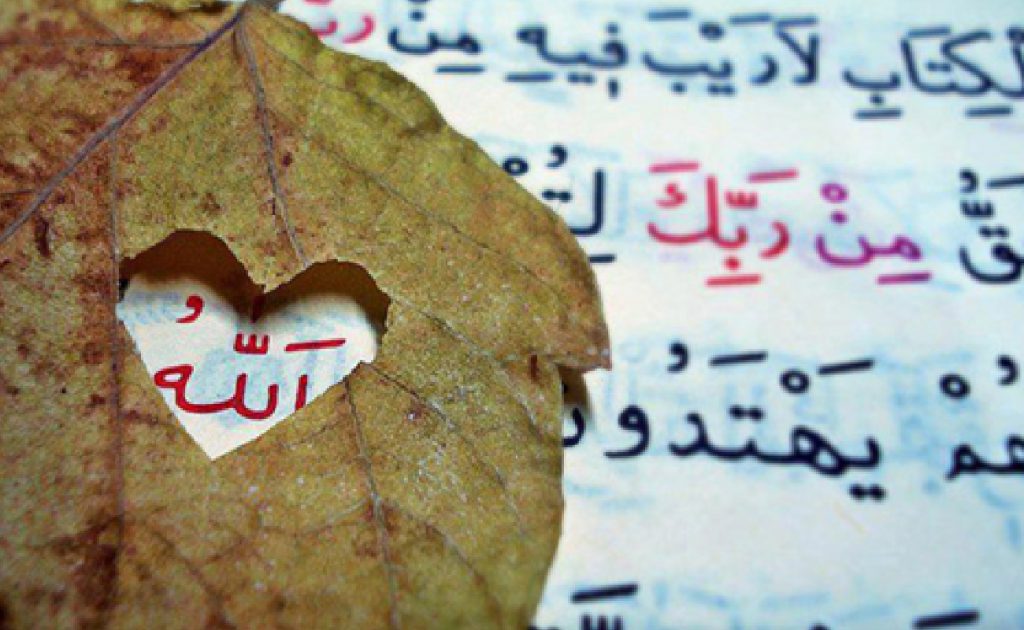 لْكِتَابِ لَارَيْبَ فِيهِ مِنْ
مِنْ رَبِّكَ
هُمْ يَهْتَدُونَ اَللّٰهُ